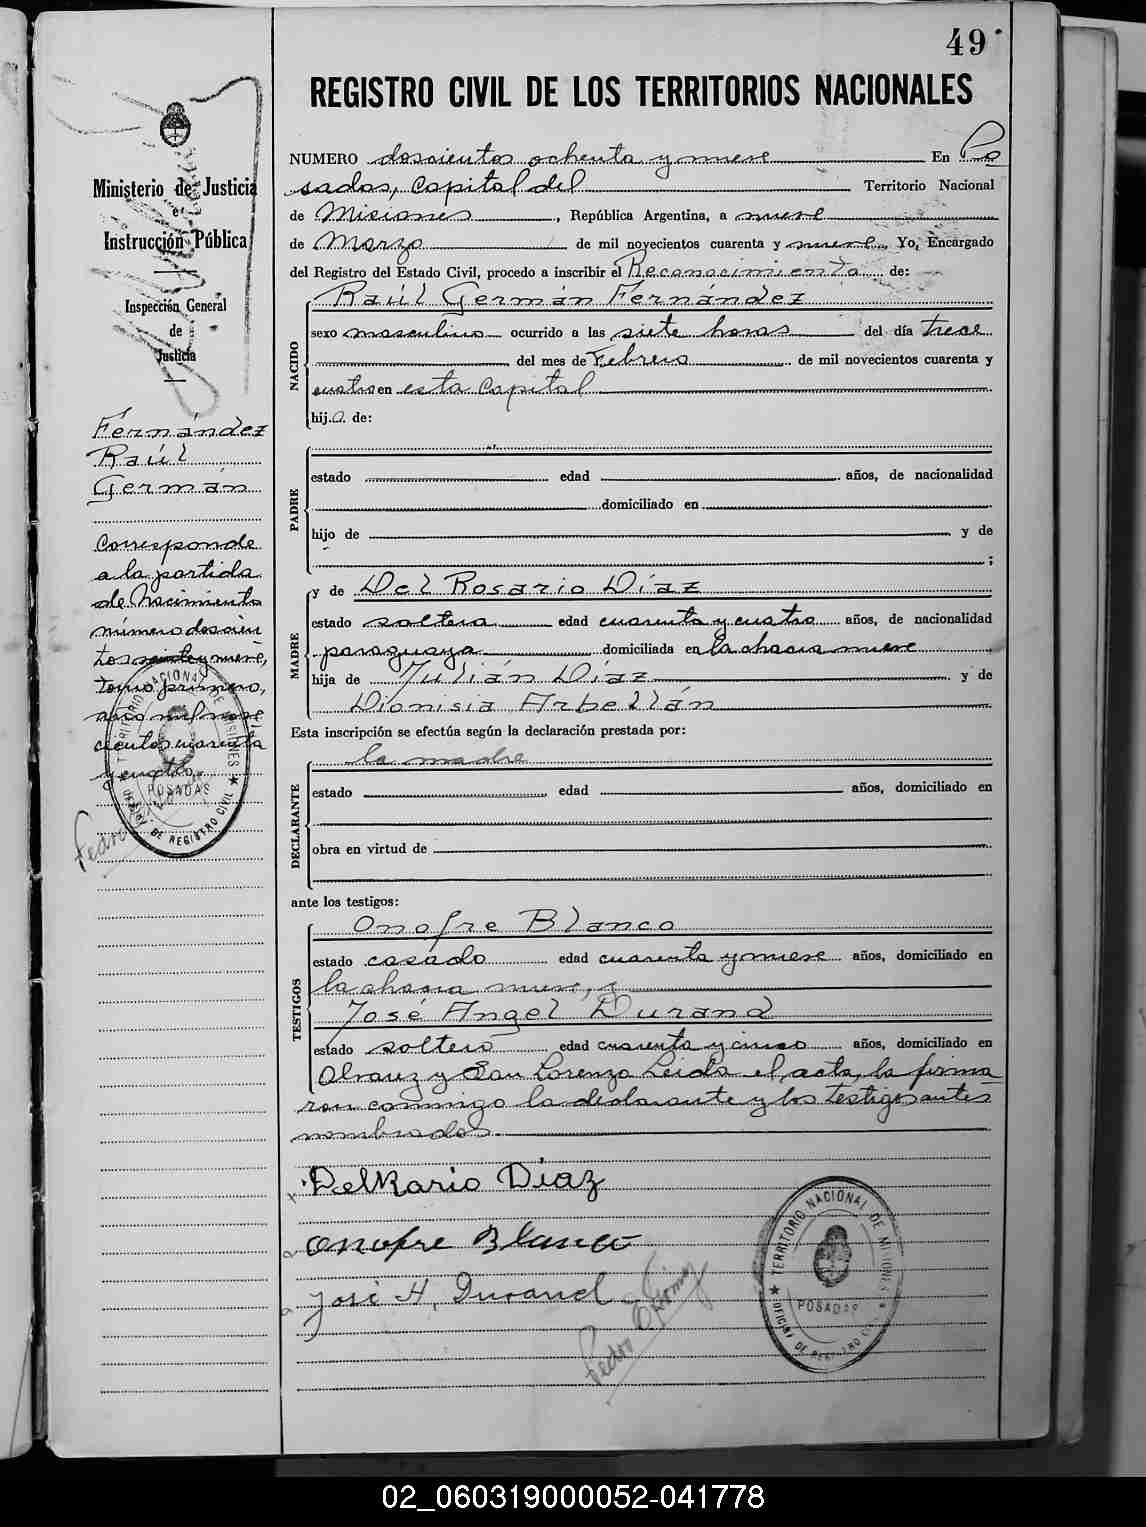 49
REGISTRO CIVIL DE LOS TERRITORIOS NACIONALES
Ministerio de Justicia
e
Instrucción Pública
Inspección General
de
Justicia
Fernández
Raúl
Germán
Corresponde
a la partida
de Nacimiento
número doscien
tos nueve,
tomo primero,
año mil nove
cientos cuarenta
y cuatro.
NUMERO doscientos ochenta y nueve En Po
sadas, Capital del Territorio Nacional
de Misiones, República Argentina, a nueve
de Marzo de mil novecientos cuarenta y nueve, Yo, Encargado
del Registro del Estado Civil, procedo a inscribir el Reconocimiento de:
NACIDO
Raúl Germán Fernández
sexo masculino ocurrido a las siete horas del día trece
del mes de Febrero de mil novecientos cuarenta y
cuatro en esta Capital
hijo de:
PADRE
estado edad años, de nacionalidad
domiciliado en
hijo de y de
;
MADRE
y de Del Rosario Díaz
estado soltera edad cuarenta y cuatro años, de nacionalidad
paraguaya domiciliada en la chacra nueve
hija de Julián Díaz y de
Dionisia Arbellán
Esta inscripción se efectúa según la declaración prestada por:
DECLARANTE
la madre
estado edad años, domiciliado en
obra en virtud de
ante los testigos:
TESTIGOS
Onofre Blanco
estado casado edad cuarenta y nueve años, domiciliado en
la chacra nueve, y
José Angel Durand
estado soltero edad cuarenta y cinco años, domiciliado en
Alvarez y San Lorenzo Leida el acta, la firma
ron conmigo la declarante y los testigos antes
nombrados.
DelRario Díaz
Onofre Blanco
José A. Durand
Pedro
TERRITORIO NACIONAL DE MISIONES
POSADAS
OFICINA DE REGISTRO CIVIL
TERRITORIO NACIONAL DE MISIONES
POSADAS
OFICINA DE REGISTRO CIVIL
02_060319000052-041778